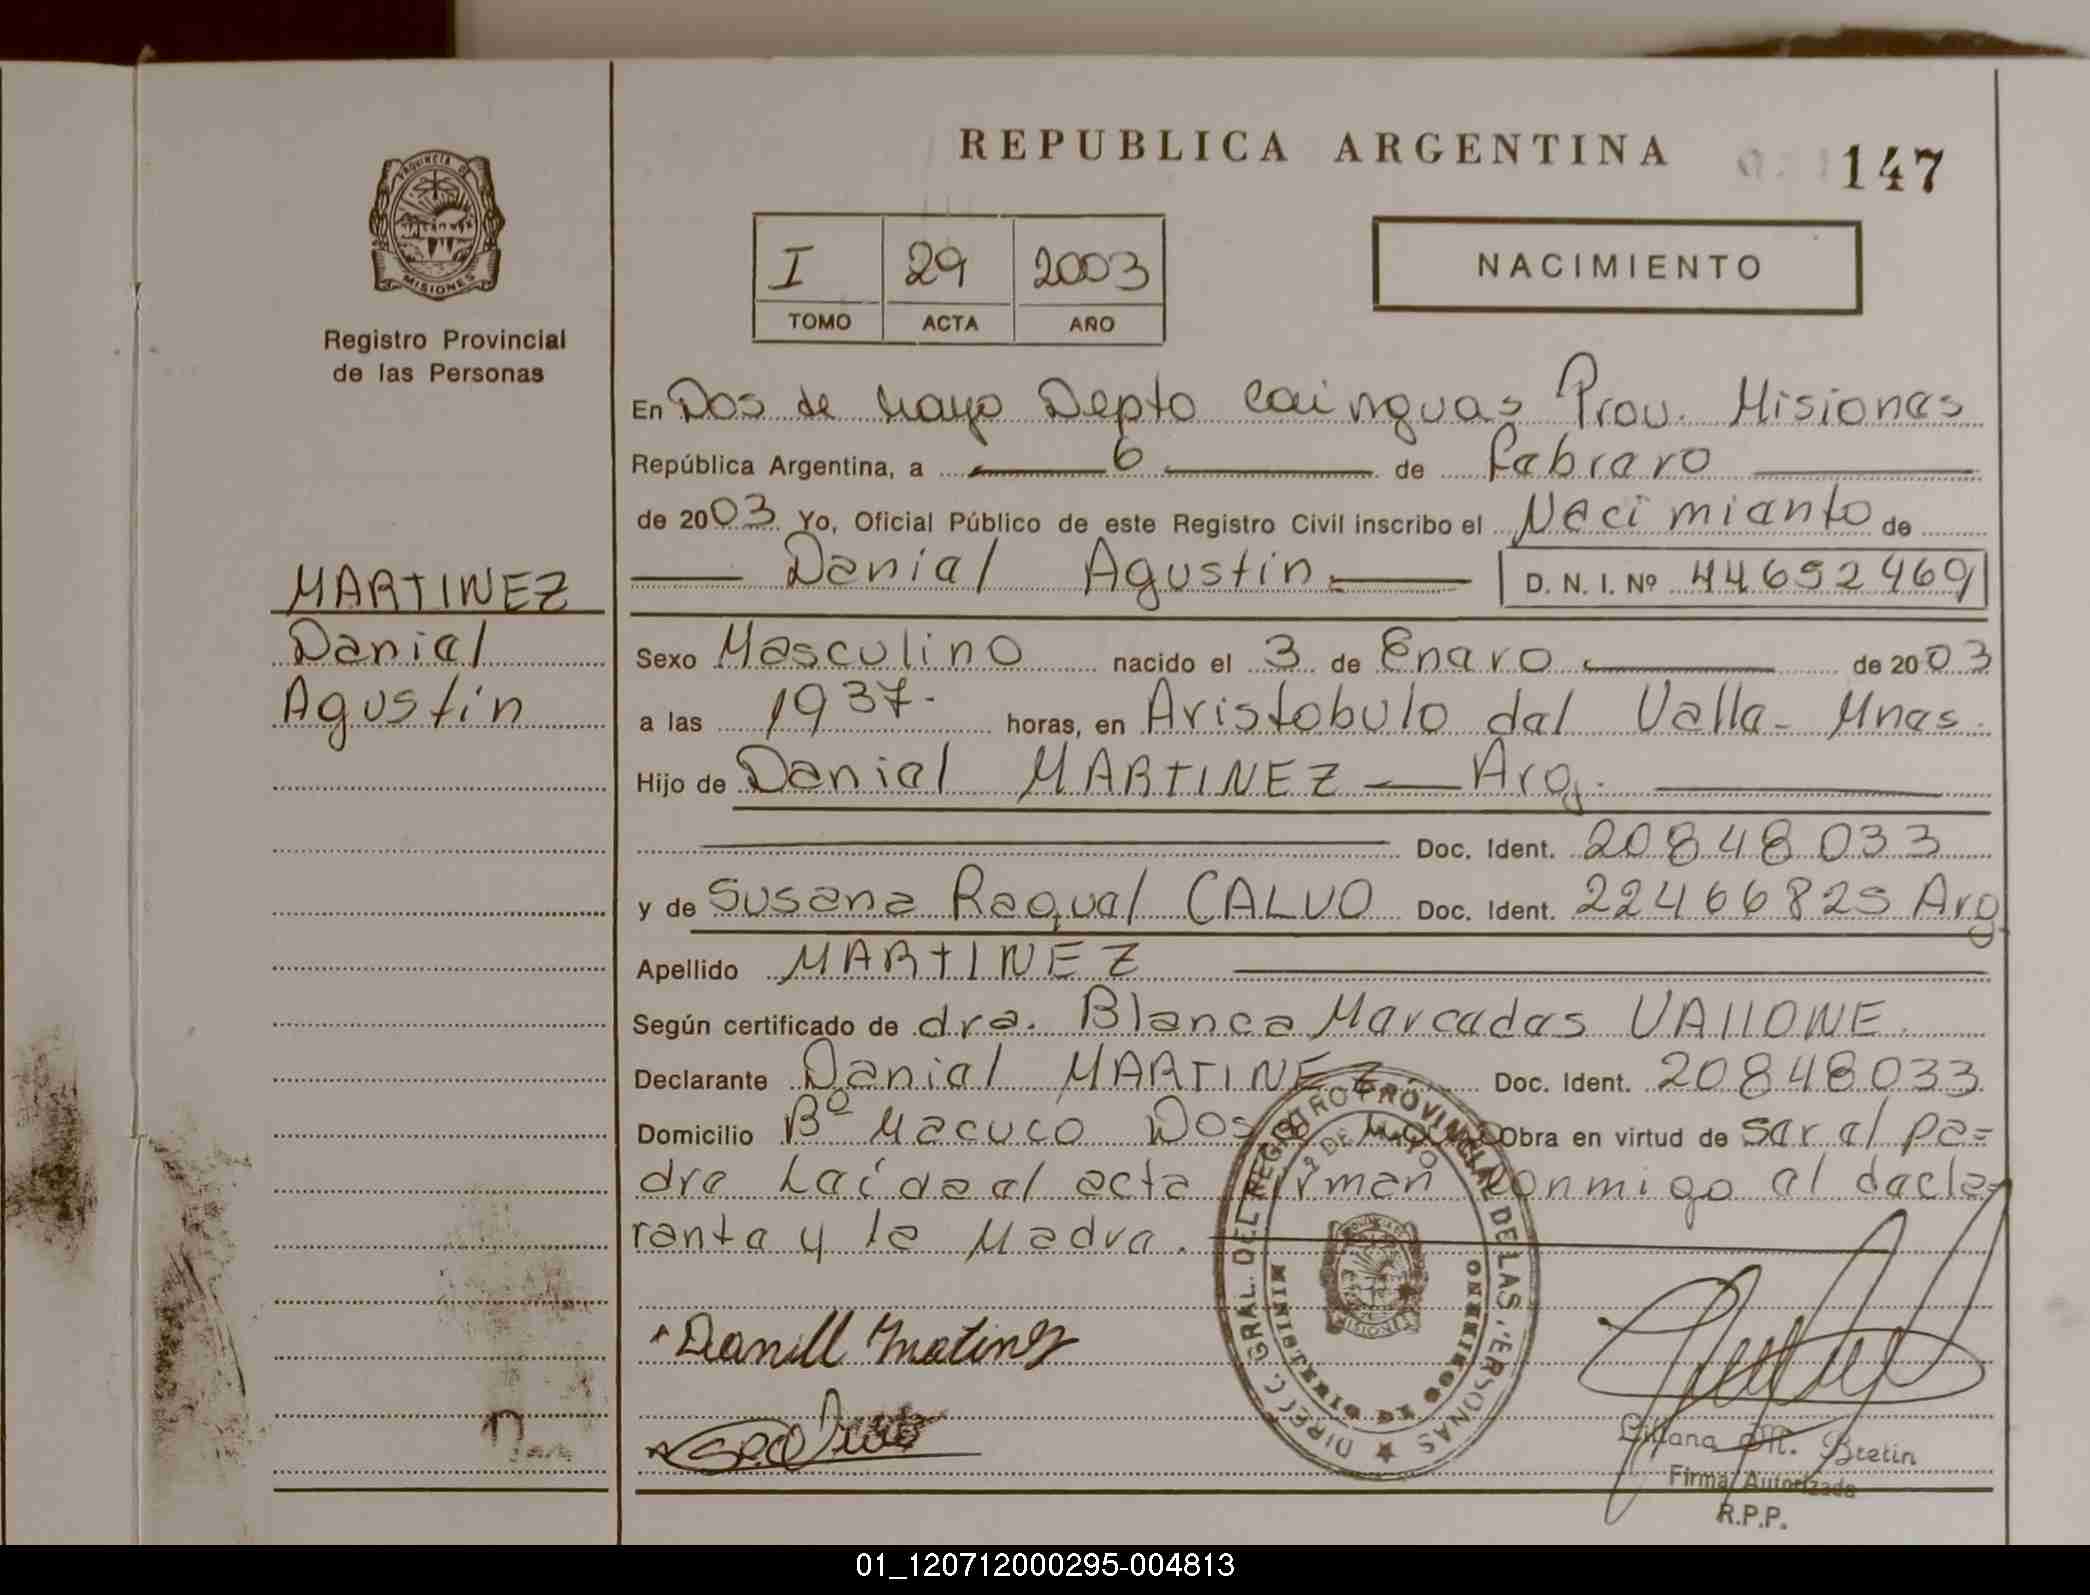 REPUBLICA ARGENTINA
147
PROVINCIA DE MISIONES
Registro Provincial
de las Personas
I 29 2003
TOMO ACTA AÑO
NACIMIENTO
En Dos de Mayo Depto Cainguas Prov. Misiones
República Argentina, a 6 de Febrero
de 2003 Yo, Oficial Público de este Registro Civil inscribo el Nacimiento de
Daniel Agustín. D. N. I. Nº 44652469
MARTINEZ
Daniel
Agustín
Sexo Masculino nacido el 3 de Enero de 2003
a las 19 37- horas, en Aristobulo del Valle- Mnes.
Hijo de Daniel MARTINEZ — Arg.
Doc. Ident. 20848033
y de Susana Raquel CALVO Doc. Ident. 22466825 Arg
Apellido MARTINEZ
Según certificado de dra. Blanca Mercedes VALLONE.
Declarante Daniel MARTINEZ Doc. Ident. 20848033
Domicilio Bº Macuco Dos de Mayo Obra en virtud de ser el pa=
dre Leída el acta firman conmigo el decla=
rante y la Madre.
DIREC. GRAL. DEL REGISTRO PROVINCIAL DE LAS PERSONAS
2 DE MAYO
MISIONES
Liliana M. Bretin
Firma Autorizada
R.P.P.
01_120712000295-004813